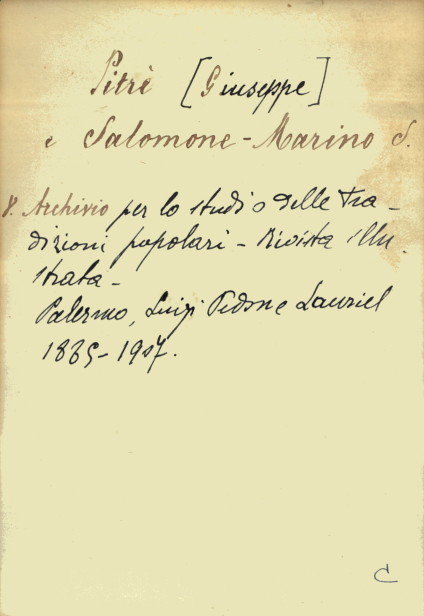 Pitrè [Giuseppe]
e Salomone-Marino S.
V. Archivio per lo studio delle Tra-
dizioni popolari - Rivista illu-
strata -
Palermo, Luigi Pedone Lauriel
1885-1907.
C